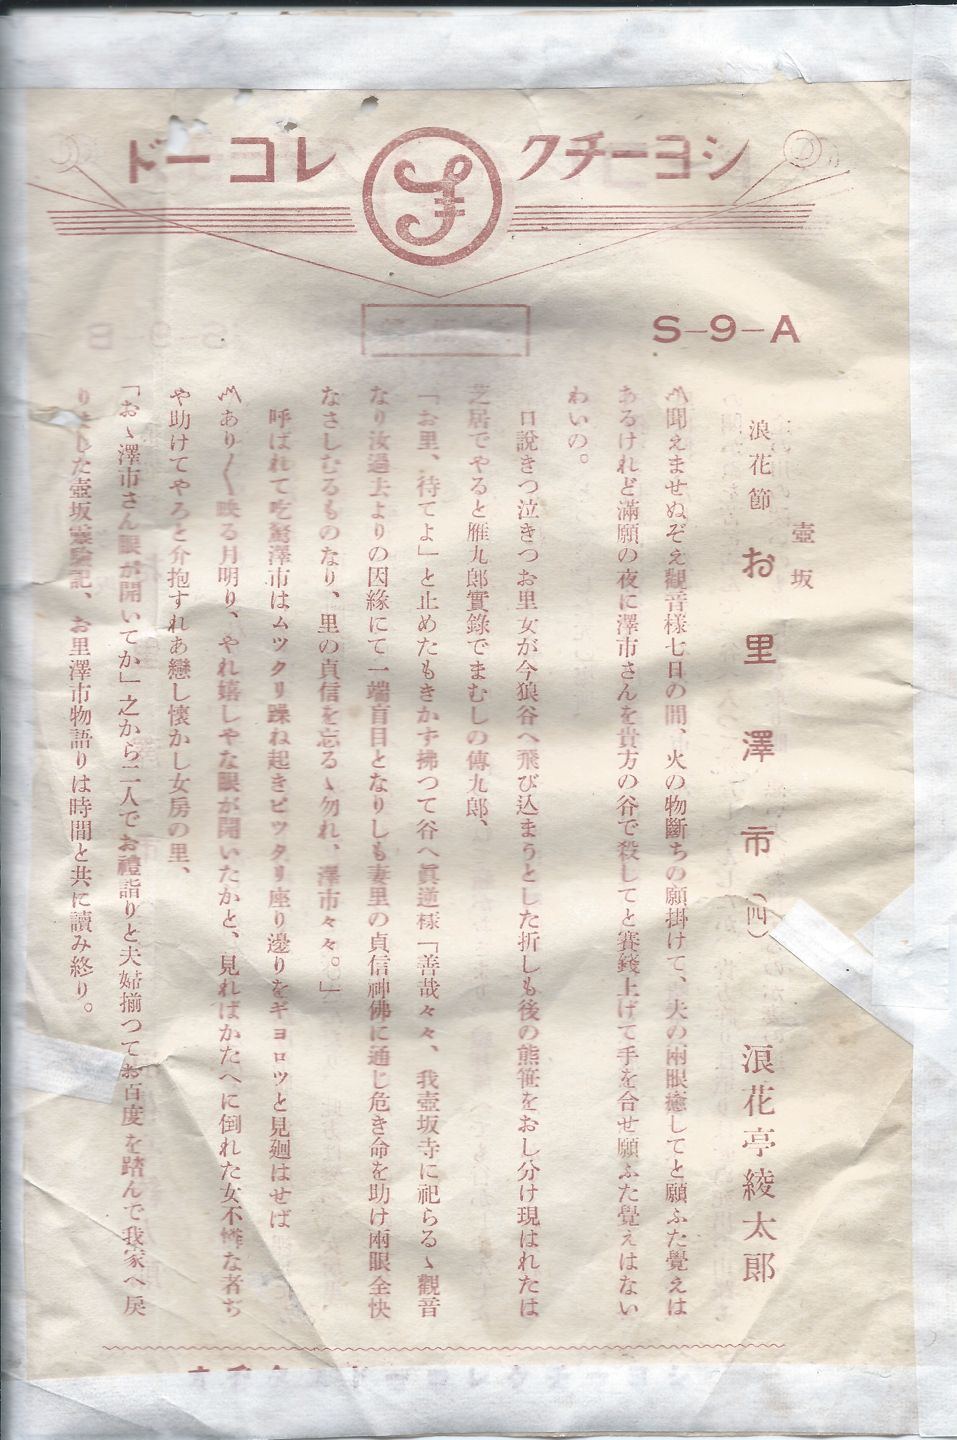 ショーチク レコード
S-9-A
壺坂
浪花節 お里澤市 (四) 浪花亭綾太郎
聞えませぬぞえ觀音様七日の間、火の物斷ちの願掛けて、夫の兩眼癒してと願ふた覺えは
あるけれど滿願の夜に澤市さんを貴方の谷で殺してと賽錢上げて手を合せ願ふた覺えはない
わいの。
口說きつ泣きつお里女が今狼谷へ飛び込まうとした折しも後の熊笹をおし分け現はれたは
芝居でやると雁九郎實錄でまむしの傳九郎、
「お里、待てよ」と止めたもきかず拂つて谷へ眞逆様「善哉々々、我壺坂寺に祀らるゝ觀音
なり汝過去よりの因緣にて一端盲目となりしも妻里の貞信神佛に通じ危き命を助け兩眼全快
なさしむるものなり、里の貞信を忘るゝ勿れ、澤市々々。」
呼ばれて吃驚澤市はムツクリ躁ね起きピツタリ座り邊りをギョロツと見廻はせば
あり〳〵映る月明り、やれ嬉しやな眼が開いたかと、見ればかたへに倒れた女不憫な者ぢ
や助けてやろと介抱すれあ戀し懐かし女房の里、
「おゝ澤市さん眼が開いてか」之から二人でお禮詣りと夫婦揃つてお百度を踏んで我家へ戾
りました壺坂靈驗記、お里澤市物語りは時間と共に讀み終り。